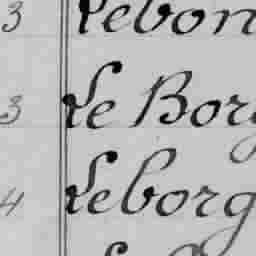 3 Lebon
3 Le Borg
4 Leborg